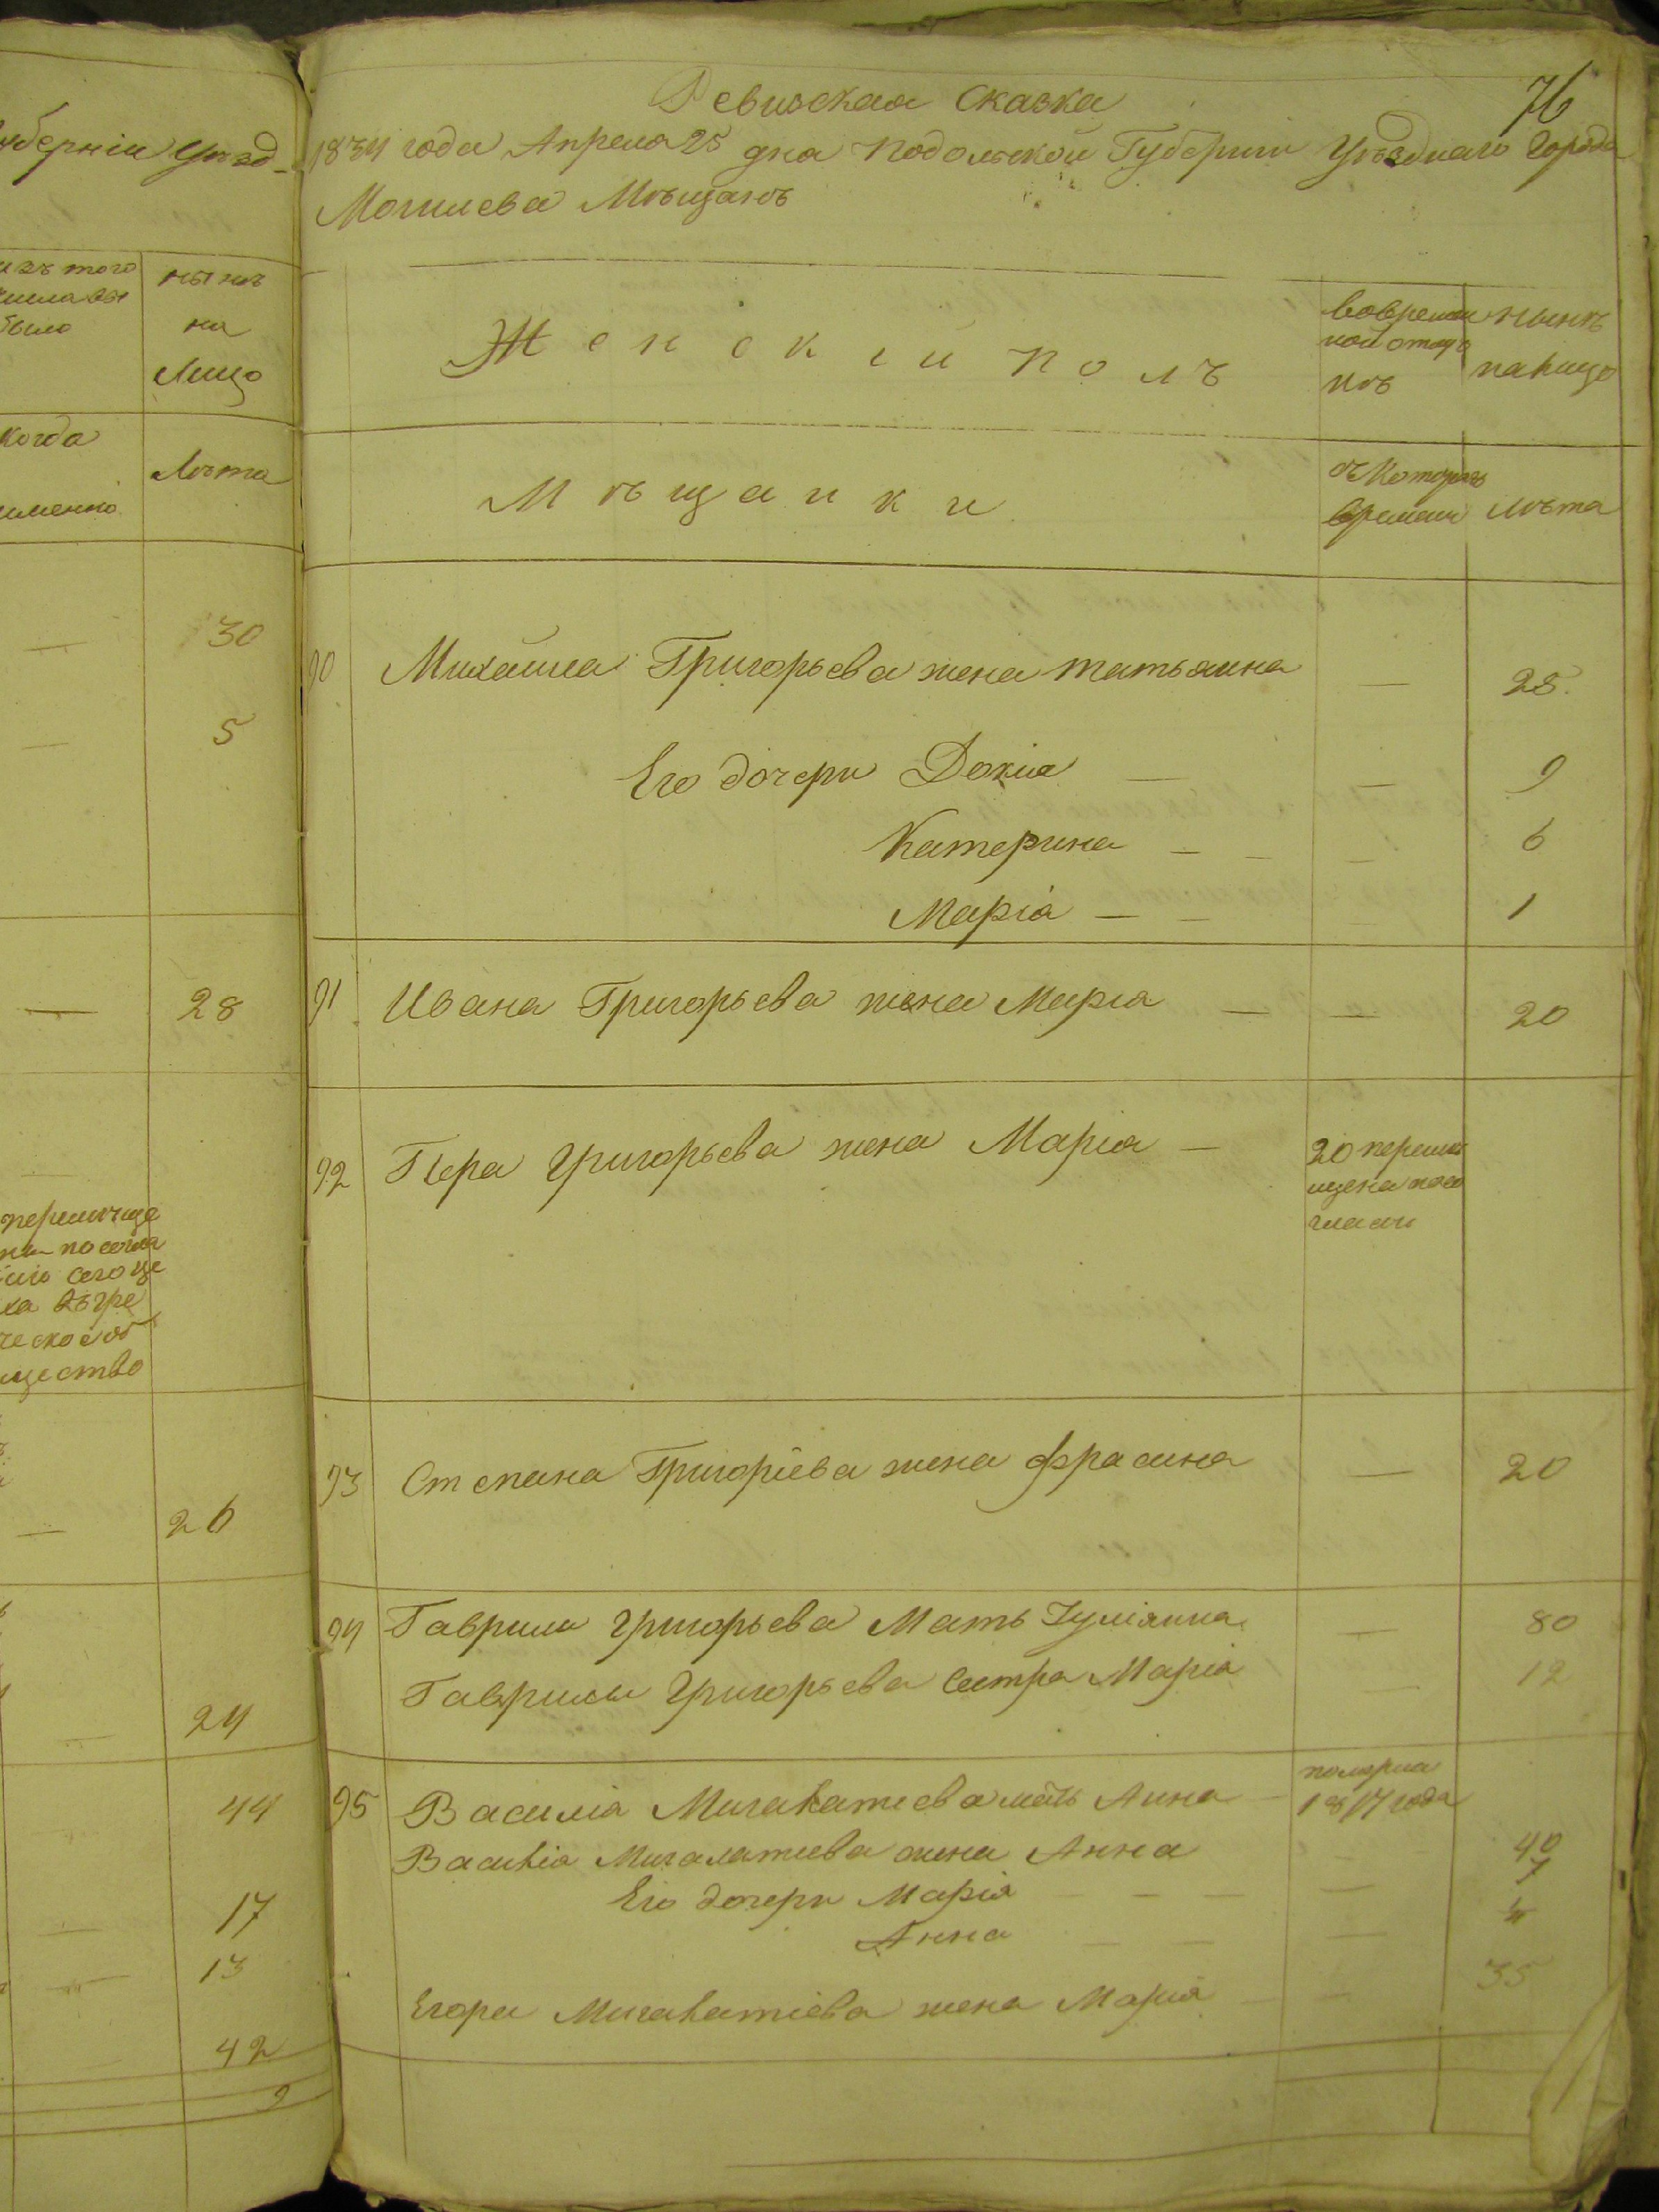 уберніи Уѣзд
изъ того
числа вы
было
нынѣ
на
Лицо
когда
именно
Лѣта
30
5
28
перемѣще
ны по согла
сію сего це
ха въ гре
ческое об
щество
26
24
44
17
13
42
9
76
Ревизская Сказка
1834 года Апреля 25 дня Подольской Губерніи Уѣзднаго Города
Могилева Мѣщанъ
Женскій Полъ
вовремен
ной отлуч
кѣ
нынѣ
налицо
Мѣщанки
съ Которго
времени
лѣта
90 Михайла Григорьева жена татьянна — 28.
Его дочери Докия — — 9
Катерина — — — 6
Маріа — — — 1
91 Ивана Григорьева жена Маріа — — 20
92 Пера Григорьева жена Маріа —
20 переме
щена посо
гласи
93 Степана Григоріева жена Фрасина — 20
94 Гаврила Григорьева Мать Іуліянна — 80
Гаврилы Григорьева Сестра Маріа — 12
95 Василіа Мигалатиева мать Анна —
померла
1817 года
Василіа Мигалатиева жена Анна — 40
Его дочери Маріа — — — 7
Анна — — — 4
Егора Мигалатіева жена Маріа — — 35